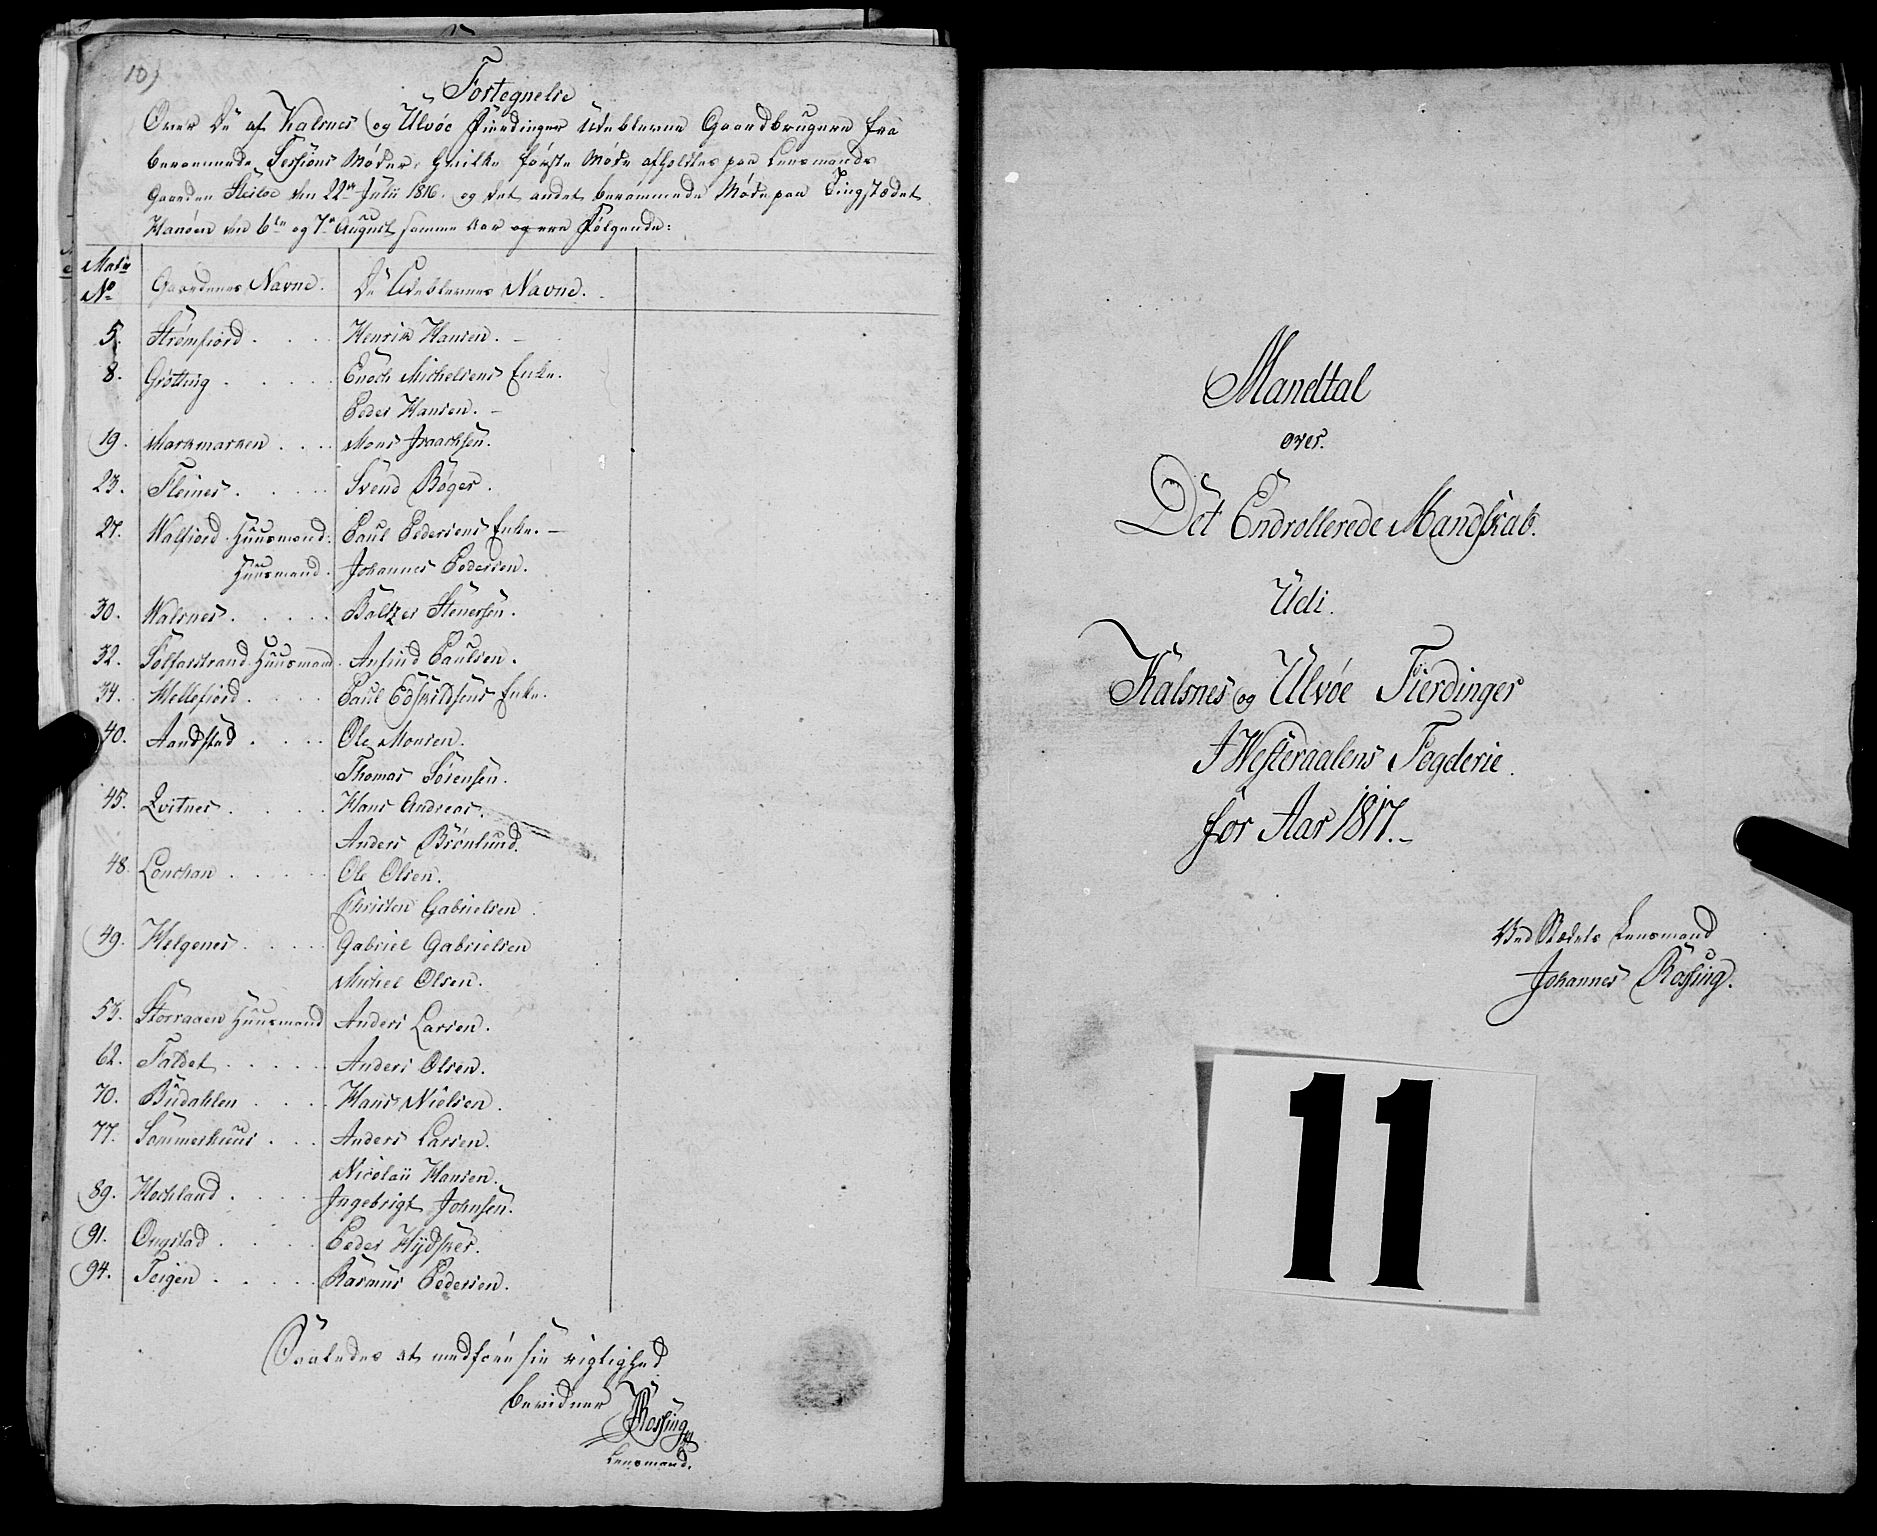 10)
Fortegnelse
Over de af Kalsnes og Ulvøe Fierdinger Udeblevne Gaardbrugere fra
berammede Sessions Møder, hvilke første Møde afholdtes paa Lensmands
Gaarden Steiloe den 22de Julii 1816. og det andet berammede Møde paa Tingstædet
Hanøen den 6te og 7de August samme Aar og ere Følgende:
Matr: No
Gaardenes Navne.
De Udeblevnes Navne.
5. Strømfiord . . . . Henrik Hansen. -
8. Grøtting . . . . . Enoch Michelsens Enke.
Peder Hansen. -
19. Markmarken . . . . Mons Isaachsen.
23. Fleines . . . . . Svend Bøger.
27. Walfiord. Huusmand: Paul Pedersens Enke. -
Huusmand. Johannes Pedersen.
30. Walsnes . . . . . Baltzer Stenersen.
32. Solfarstrand Huusmand. Anfind Paulsen.
34. Mellefiord . . . . Paul Edskildsens Enke.
40. Aandstad . . . . Ole Monsen.
Thomas Sørensen.
45. Qvitnes . . . . Hans Andreas.
Anders Brönlund.
48. Lonchan . . . . . Ole Olsen.
Christen Gabrielsen.
49. Helgenes . . . . Gabriel Gabrielsen
Michel Olsen.
53. Storraaen Huusmand Anders Larsen.
62. Faldet . . . . . Anders Olsen.
70. Budahlen . . . . Hans Nielsen.
77. Sommerhuus . . . Anders Larsen.
Nicolaii Hansen.
89. Hochland . . . . Ingebrigt Johnsen.
91. Ongstad . . . . Peder Hydsker.
94. Teigen . . . . . Rasmus Pedersen.
Saaledes at medføre sin rigtighed
bevidner JRossing
Lensmand.
Mandtal
over.
Det Endrollerede Mandskab.
Udi.
Kalsnes og Ulvøe Fierdinger
I Westeraalens Fogderie.
for Aar 1817.-
Ved Stædets Lensmand
Johannes Rossing.
11